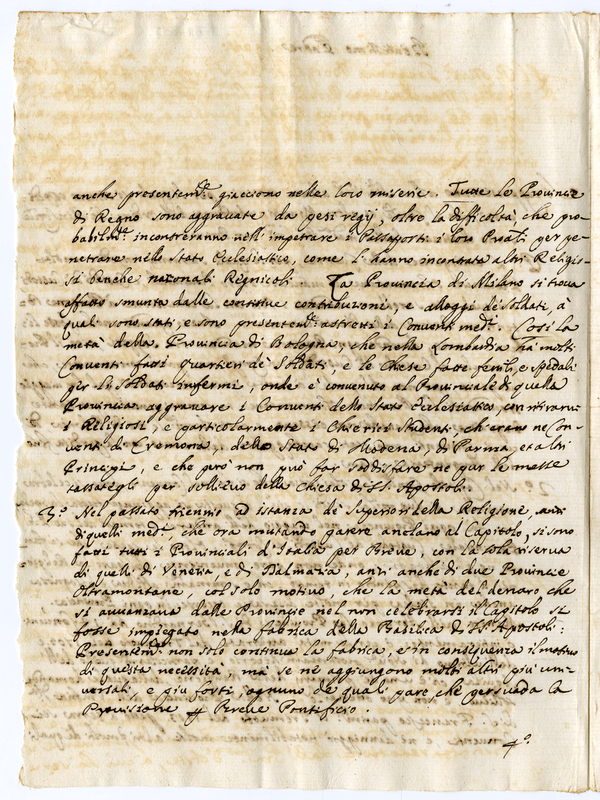 anche presentem.te giacciono nelle loro miserie. Tutte le Provincie
di Regno sono aggravate da pesi regij, oltre la difficoltà, che pro-
babilm.te incontreranno nell'impetrare i Passaporti i loro Proāli per pe-
netrare nello Stato Ecclesiastico, come l'hanno incontrata altri Religio-
si benche nazionali Regnicoli. La Provincia di Milano si trova
affatto smunta dalle continue contribuzioni, e alloggi de' Soldati, a'
quali sono stati, e sono presentem.te astretti i Conventi med.mi Così la
metà della Provincia di Bologna, che nella Lombardia hà molti
Conventi fatti quartieri de' Soldati, e le Chiese fatte fenili, e Spedali
per li Soldati infermi, onde è convenuto al Provinciale di quella
Provincia aggravare i Conventi dello Stato Ecclesiastico, con ritirarvi
i Religiosi, e particolarmente i Chierici Studenti, ch'erano ne Con-
venti di Cremona, dello Stato di Modena, di Parma, et altri
Principi, e che però non può far soddisfare ne pur le messe
tassategli per sollievo della Chiesa di SS. Apostoli.
3.o Nel passato triennio ad istanza de' Superiori della Religione, anzi
di quelli med.mi che ora mutando parere anelano al Capitolo, si sono
fatti tutti i Provinciali d'Italia per Breve, con la sola riserva
di quelli di Venezia, e di Dalmazia, anzi anche di due Provincie
Oltramontane, col solo motivo, che la metà del denaro che
si avvanzava dalle Provincie nel non celebrarsi il Capitolo si
fosse impiegato nella fabrica della Basilica di SS. Apostoli:
Presentem.te non solo continua la fabrica, e in conseguenza il motivo
di questa necessità, ma se ne aggiungono molti altri più uni-
versali, e più forti, ognuno de' quali pare, che persuada la
Provisione p Breve Pontificio.
4.o